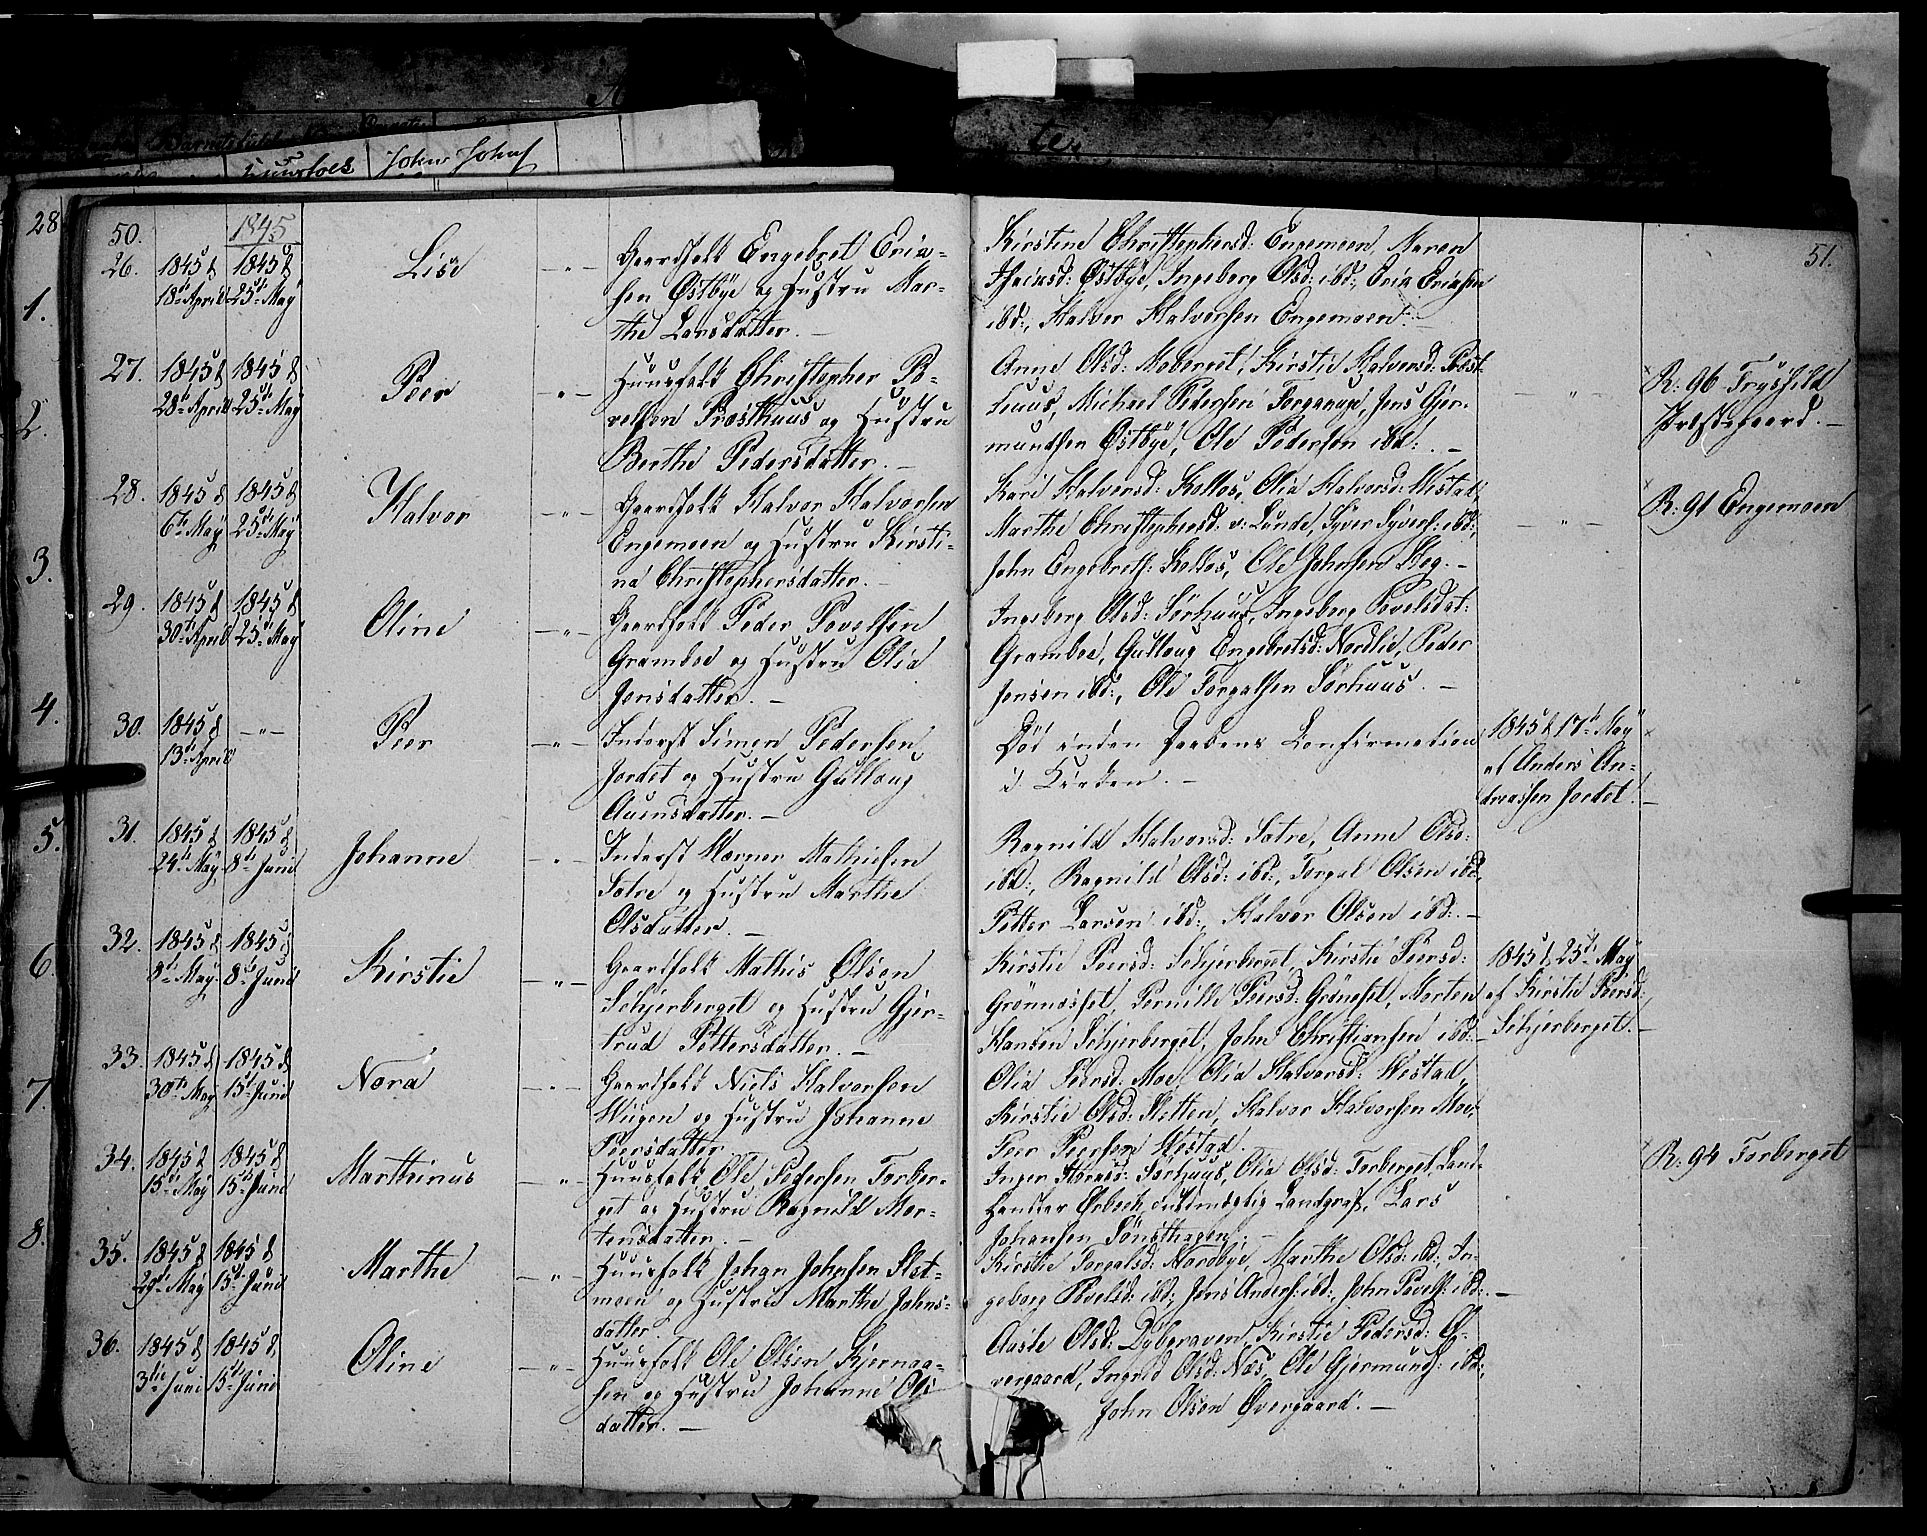 John Johns
28
50.
1845
51.
1.
2.
3.
4.
5.
6.
7.
8.
26.
1845 d
18de April
1845 d
25de May
Lise
Gaardfolk Engebret Erik-
sen Østbÿe og Hustru Mar-
the Larsdatter. –
Kirstine Christophersd: Engemoen, Maren
Østbÿe, Ingeborg Olsd: ibd:, Erik Eriksen
ibd:, Halvor Halvorsen Engemoen. –
27.
1845 d
1845 d
25de May
Peer
Huusfolk Christopher Po-
velsen Prösthuus og Hustru
Berthe Pedersdatter. –
Anne Olsd: Moberget, Kirstie Halvorsd: Pröst-
huus, Michael Pedersen, Jens Gjer-
mundsen Østbÿe, Ole Pedersen ibd: . –
R: 96 Trysild
Præstegaard. –
28.
1845 d
6te May
1845 d
25de May
Halvor
Gaardfolk Halvor Halvorsen
Engemoen og Hustru Kirsti-
na Christophersdatter. –
Kari Halvorsd: Kollos, Olia Halvorsd: Westad,
Marthe Christophersd: v: Lunde, Syver Syvers: ibd:,
John Engebrets: Kollos, Ole Johnsen Skog. –
R: 91 Engemoen
29.
1845 d
30te April
1845 d
25de May
Oline
Gaardfolk Peder Povelsen
Gramboe og Hustru Olia
Jonsdatter. –
Ingeborg Olsd: Sörhuus, Ingeborg Povelsdt:
Gramboe, Gulloug Engebretsd: Nordlie, Peder
Jensen ibd:, Ole Torgalsen Sörhuus. –
30.
1845 d
13de April
Peer
Inderst Simen Pedersen
Jordet og Hustru Gulloug
Amundsdatter. –
Död inden Daabens Confirmation
i Kirken. –
1845 d 17de May
af Anders An-
dreassen Jordet. –
31.
1845 d
24de May
1845 d
8de Juni
Johanne
Inderst Werner Mathisen
Sætre og Hustru Marthe
Olsdatter. –
Ragnild Halvorsd: Sætre, Anne Olsd:
ibd:, Ragnild Olsd: ibd:, Torgal Olsen ibd:,
Petter Larsen ibd:, Halvor Olsen ibd: –
32.
1845 d
8de May
1845 d
8de Juni
Kirstie
Gaardfolk Mathis Olsen
Schjerberget og Hustru Gjer-
trud Pettersdatter. –
Kirstie Peersd: Schjerberget, Kirstie Peersd:
Grönnæsset, Pernille Peersd: Gröneset, Morten
Hansen Schjerberget, John Christiansen ibd: –
1845 d 25de May
af Kirstie Peersd:
Schjerberget. –
33.
1845 d
30te May
1845 d
15de Juni
Nora
Gaardfolk Niels Halvorsen
Wigen og Hustru Johanne
Peersdatter.
Olia Peersd: Moe, Olia Halvorsd: Westad,
Kirstie Olsd: Sletten, Halvor Halvorsen Moe,
Peer Peersen Westad.
34.
1845 d
15de May
1845 d
15de Juni
Marthinus
Huusfolk Ole Pedersen Torber-
get og Hustru Ragnild Mor-
tensdatter. –
Inger Sörhuus, Olia Olsd: Torberget, Land-
handler Örbech, Fuldmægtig Landgraf, Lars
Johansen Sönsthagen. –
R: 94 Torberget
35.
1845 d
29de May
1845 d
15de Juni
Marthe
Huusfolk Johan Johnsen Slet-
moen og Hustru Marthe Johns-
datter.
Kirstie Torgalsd: Nordbÿe, Marthe Olsd: ibd:, In-
geborg Povelsd: ibd:, Jens Anders: ibd:, John Povels: ibd: –
36.
1845 d
3die Juni
1845 d
15de Juni
Oline
Huusfolk Ole Olsen Kjernaa-
sen og Hustru Johanne Ols-
datter. –
Aaste Olsd: Dybgraven, Kirstie Pedersd: Ø-
vergaard, Ingrid Olsd: Næs, Ole Gjermunds: ibd:,
John Olsen Övergaard. –